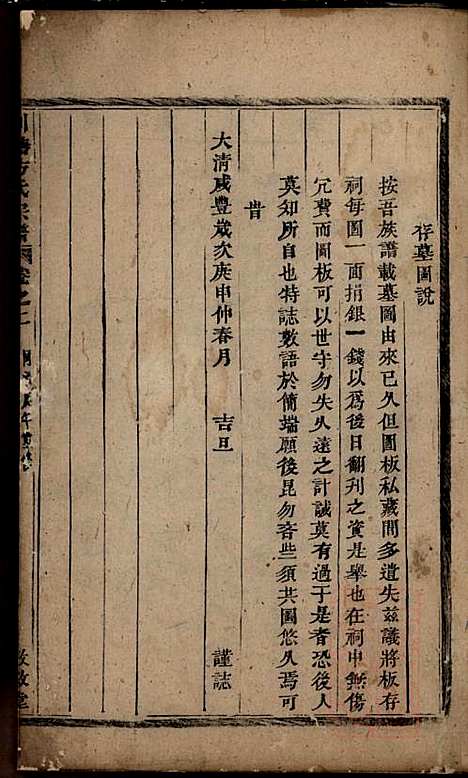 存墓圖說
按吾族譜載墓圖由來已久但圖板私藏間多遺失茲議將板存
祠每圖一面捐銀一錢以爲後日翻刋之資是舉也在祠中無傷
冗費而圖板可以世守勿失久遠之計誠莫有過于是者恐後人
莫知所自也特誌數語於簡端願後昆勿吝些須共圖悠久焉可
昔
大清咸豐歲次庚申仲春月 吉旦 謹誌
方氏宗譜 卷之二
敦敘堂